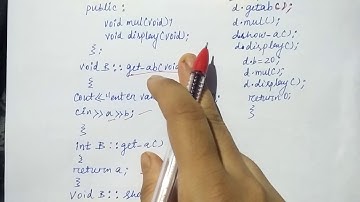 public:
void mul(void)?
void display(void);
};
void B::get-ab(void)
{
Cout<<"enter val
cin>>a>>b;
}
int B::get-a()
{
return a;
}
void B::sho
d.getab();
d.mul();
d.show-a();
d.display();
d.b=20;
d.mul();
d.display();
return 0;
}